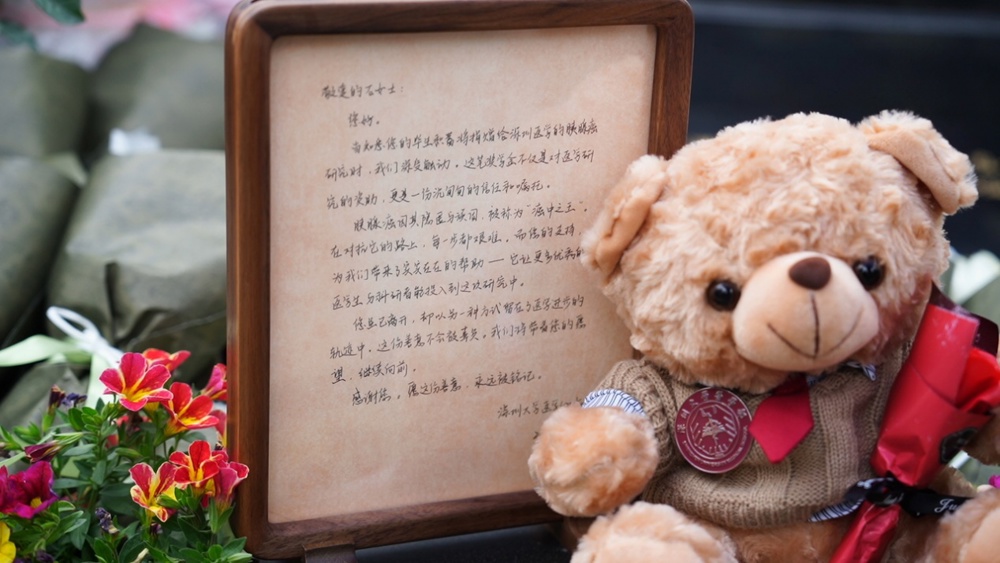 敬爱的石女士:
您好。
当知悉您的毕生积蓄将捐赠给深圳医学的胰腺癌
研究时,我们深受触动。这笔奖学金不仅是对医学研
究的资助,更是一份沉甸甸的信任和嘱托。
胰腺癌因其隐匿与凶险,被称为“癌中之王”。
在对抗它的路上,每一步都艰难。而您的支持,
为我们带来了实实在在的帮助——它让更多优秀的
医学生与科研者能投入到这次研究中。
您虽已离开,却以另一种方式留在了医学进步的
轨迹中,这份善意不会被辜负。我们将带着您的愿
望,继续向前。
感谢您。愿这份善意,永远被铭记。
深圳大学医学